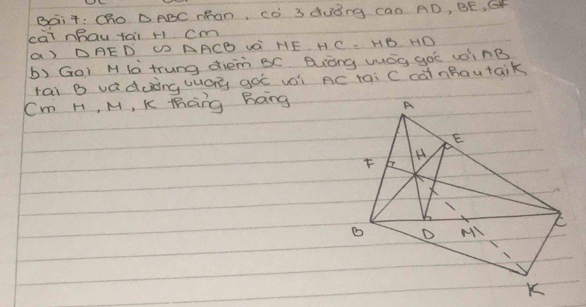 Bài 7: Cho Δ ABC nhọn, có 3 đường cao AD, BE, CF
cắt nhau tại H. Cm
a) Δ AED ∽ Δ ACB và HE. HC = HB. HD
b) Gọi M là trung điểm BC. Đường vuông góc với AB
tại B và đường vuông góc với AC tại C cắt nhau tại K
Cm H, M, K thẳng hàng
A
E
H
F
B
D
M
C
K